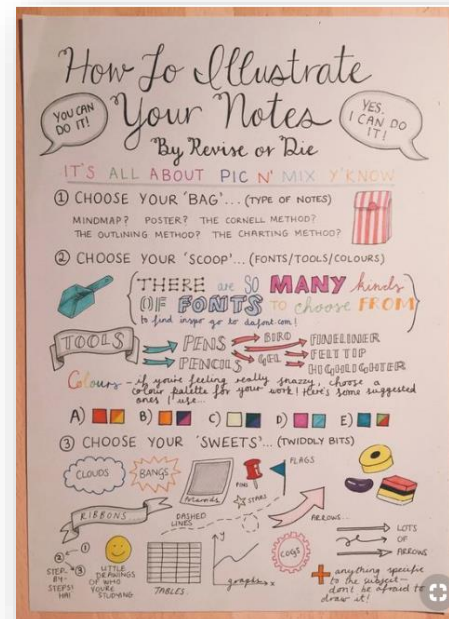 How To Illustrate
Your Notes
YOU CAN
DO IT!
YES,
I CAN DO
IT!
By Revise or Die
IT'S ALL ABOUT PIC N' MIX Y'KNOW
① CHOOSE YOUR 'BAG'... (TYPE OF NOTES)
MINDMAP? POSTER? THE CORNELL METHOD?
THE OUTLINING METHOD? THE CHARTING METHOD?
② CHOOSE YOUR 'SCOOP'... (FONTS/TOOLS/COLOURS)
THERE are SO MANY kinds
OF FONTS TO choose FROM
to find inspo go to dafont.com!
TOOLS
PENS
BIRO
GEL
FINELINER
FELT TIP
HIGHLIGHTER
PENCILS
Colours - if you're feeling really snazzy, choose a
colour palette for your work! Here's some suggested
ones I use...
A) B) C) D) E)
③ CHOOSE YOUR 'SWEETS'... (TWIDDLY BITS)
CLOUDS
BANGS
PINS
FLAGS
STARS
RIBBONS
DASHED
LINES
ARROWS...
LOTS
OF
ARROWS
① ② ③
STEP-
BY-
STEPS!
HA!
LITTLE
DRAWINGS
OF WHO
YOU'RE
STUDYING
TABLES
y
x
graphs
COGS
+ anything specific
to the subject-
don't be afraid to
draw it!